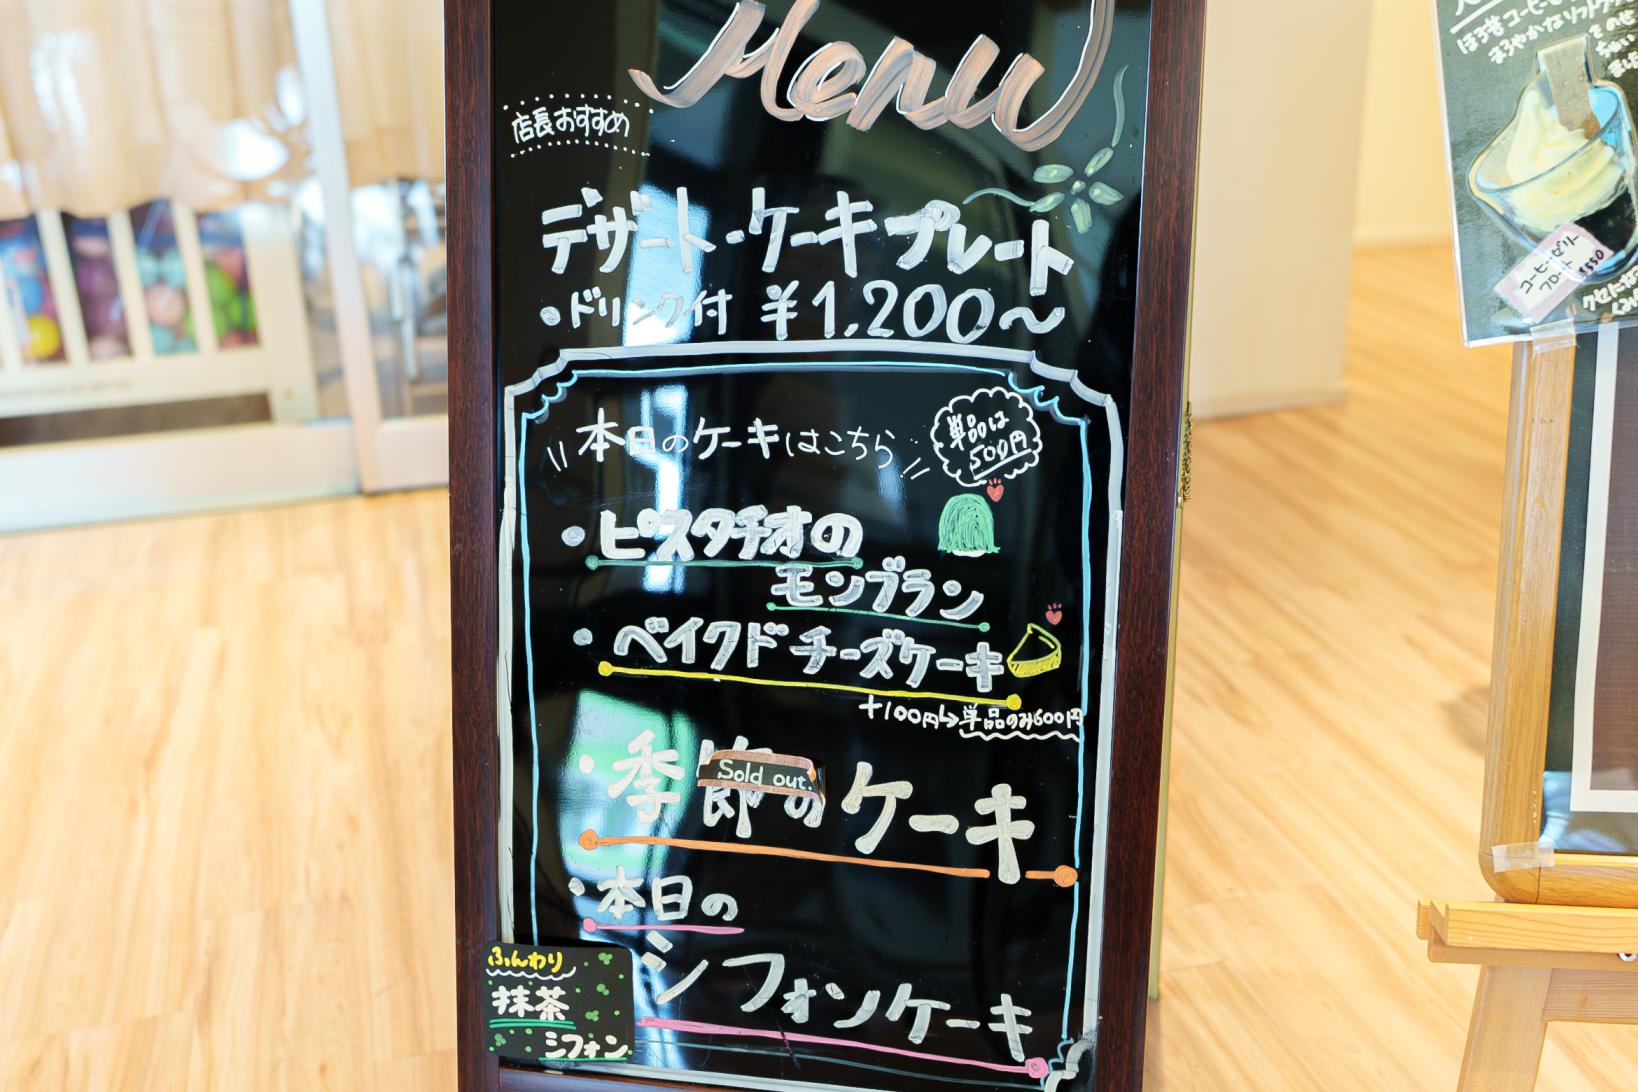 Menu
店長おすすめ
デザート・ケーキプレート
・ドリンク付 ¥1,200〜
本日のケーキはこちら
単品は
500円
・ピスタチオの
モンブラン
・ベイクドチーズケーキ
+100円↳単品のみ600円
・季節のケーキ
Sold out.
・本日の
シフォンケーキ
ふんわり
抹茶
シフォン
ほろ苦コーヒーゼ
まろやかなソフトク
をのせ
コーヒーゼリー
フロート ¥550